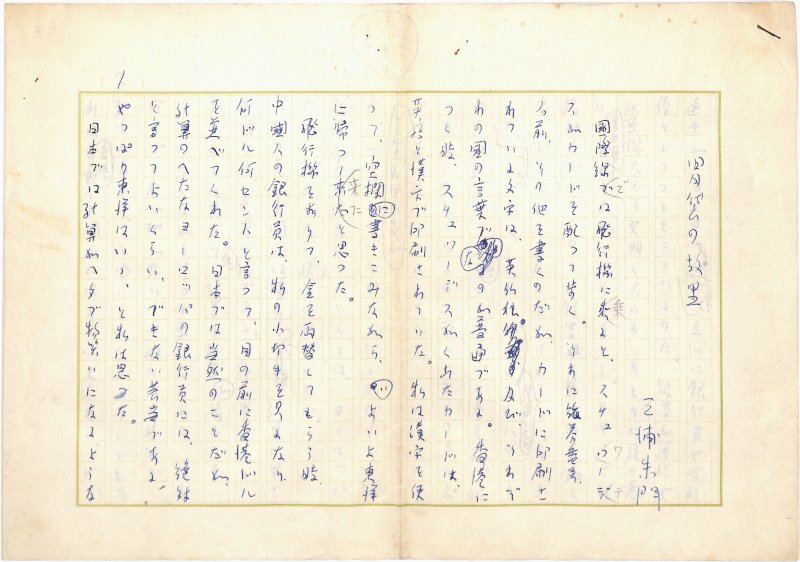 芸の故里
三浦朱門
国際線では飛行機に乗ると、スチュワーデ
スがカードを配って歩く。それに旅券番号、
名前、その他を書くのだが、カードに印刷さ
れている文字は、英仏独。及びそれぞ
れの国の言葉なのが普通である。香港に
つく時、スチュワーデスがくれたカードは、
英語と漢字で印刷されていた。私は漢字を使
って、空欄に書きこみながら、いよいよ東洋
に帰って来たと思った。
飛行機をおりて、金を両替してもらう時
中国人の銀行員は、私の小切手を見るなり、
何ドル何セントと言って、目の前に香港ドル
を並べてくれた。日本では当然のことだが、
計算のへたなヨーロッパの銀行員には、絶対
と言ってよいくらい、できない芸当である。
やっぱり東洋はいい、と私は思った。
日本では計算がヘタで物笑いになるような
1